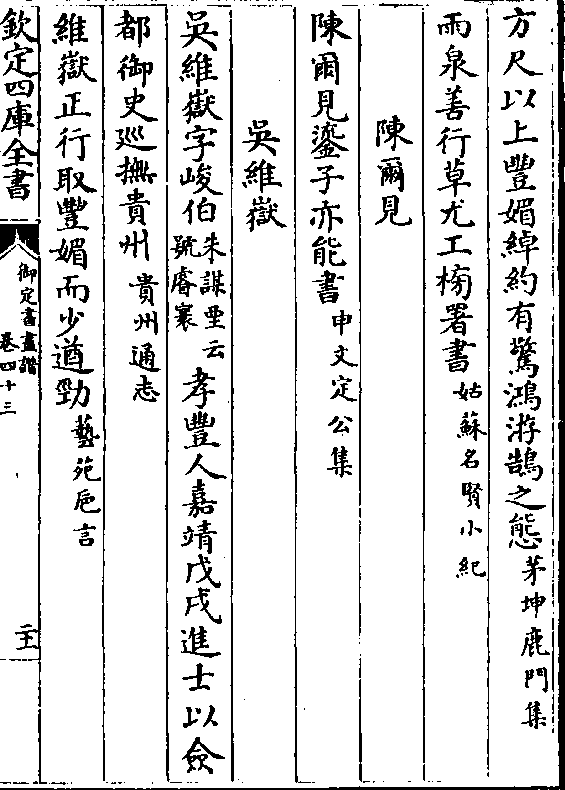 方尺以上豐媚綽約有驚鴻游鵠之態茅坤鹿門集
雨泉善行草尤工榜署書姑蘇名賢小紀
陳爾見
陳爾見鎏子亦能書申文定公集
吳維嶽
吳維嶽字峻伯朱謀垔云號霽寰孝豐人嘉靖戊戌進士以僉
都御史巡撫貴州貴州通志
維嶽正行取豐媚而少遒勁藝苑巵言
欽定四庫全書
御定書畫譜
卷四十三